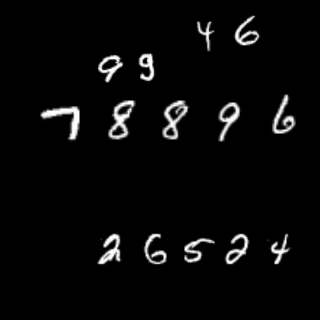 46
99
78896
26524